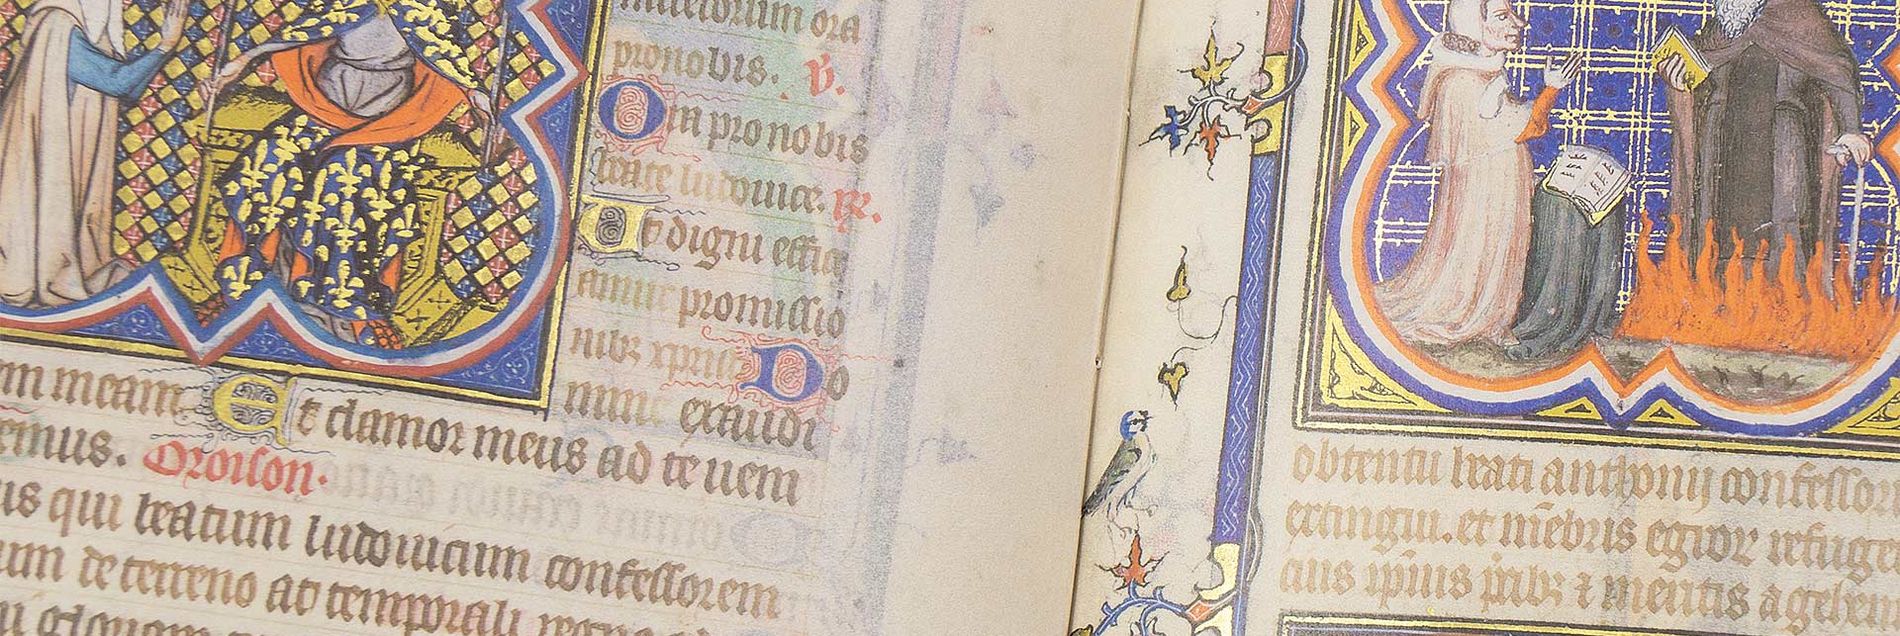 ora
pronobis. V.
Ora pro nobis
beate ludovice. R.
Ut digni effici
amur promissio
nibus xpisti Do
mine exaudi
em meam Et clamor meus ad te veni
emus. Oroison.
us qui beatum ludovicum confessorem
um de terreno ac temporali regno
obtentu beati anthonij confessor
extingui. et membris egror refuge
cius ipius precibus et meritis a gehen